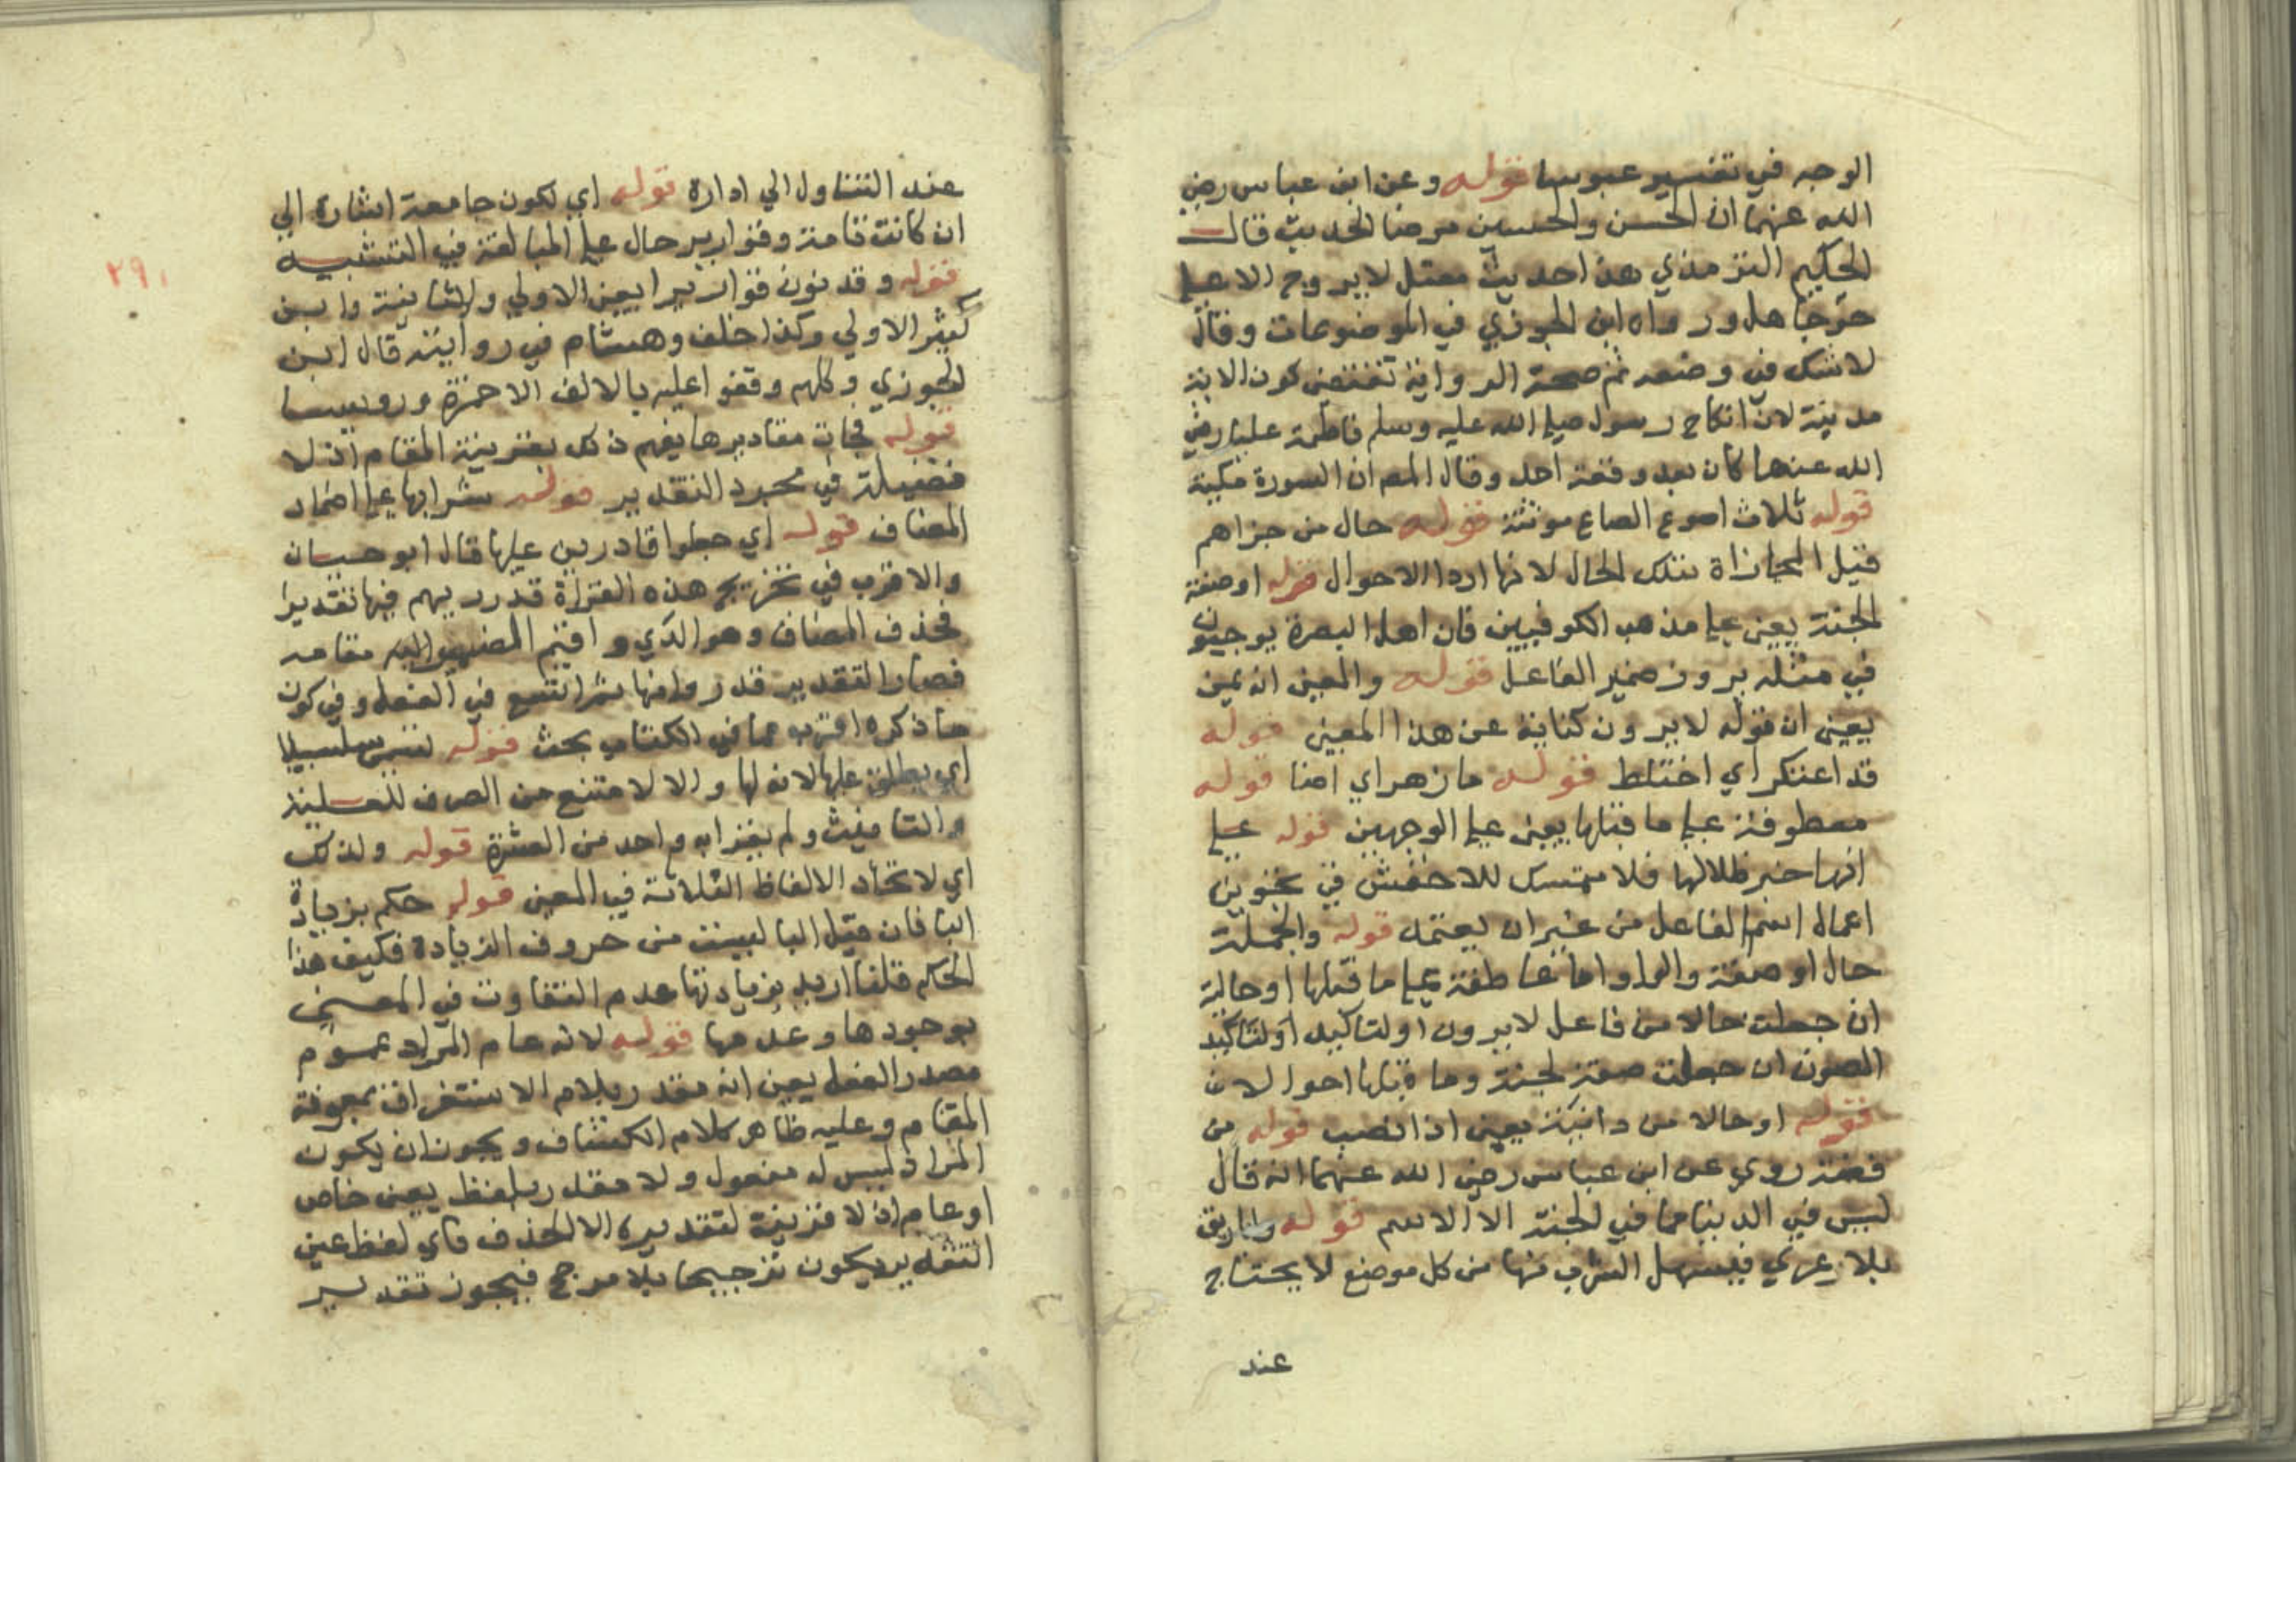 الوجه في تفسير عبوسا قوله وعن ابن عباس رضي
الله عنهما ان الحسن والحسين مرضا الحديث قال
الحكيم الترمذي هذا حديث مفتعل لا يروج الا على
جهال ورواه ابن الجوزي في الموضوعات وقال
لا شك في وضعه ثم صحة الرواية تقتضي كون الاية
مدنية لان انكاح رسول صلى الله عليه وسلم فاطمة عليا رضي
الله عنهما كان بعد وقعة احد وقال المص ان السورة مكية
قوله ثلاث اصوع الصاع مونثة قوله حال من جزاهم
قيل المجازاة بتلك الحال لانها اردا الاحوال قوله او صفة
لجنة يعني على مذهب الكوفيين فان اهل البصرة يوجبون
في مثله بروز ضمير الفاعل قوله والمعنى انه يمين
يعني ان قوله لا يرون كناية عن هذا المعنى قوله
قد اعتكر اي اختلط قوله ما زهر اي اضا قوله
معطوفة على ما قبلها يعني على الوجهين قوله على
انها خبر ظلالها فلا متمسك للاخفش في تجويز
اعمال اسم الفاعل من غير ان يعتمد قوله والجملة
حال او صفة والواو اما عاطفة على ما قبلها او حالية
ان جعلت حالا من فاعل لا يرون او لتاكيد او لتاكيد
الصون ان جعلت صفة لجنة وما قبلها احوالا
قوله او حالا من دانية يعني اذا نصب قوله من
فضة روي عن ابن عباس رضي الله عنهما انه قال
ليس في الدنيا مما في الجنة الا الاسم قوله واباريق
بلا عري فيسهل الشرب منها من كل موضع لا يحتاج
عند
٢٩١
عند التناول الي ادارة قوله اي تكون جامعة اشارة الي
ان كانت تامة وقوارير حال على المبالغة في التشبيه
قوله وقد نون قواريرا يعني الاولي والثانية وابن
كثير الاولي وكذا خلف وهشام في رواية قال ابن
الجوزي وكلهم وقفوا عليه بالالف الا حمزة ورويسا
قوله فجات مقاديرها يفهم ذلك بقرينة المقام اذ لا
فضيلة في مجرد التقدير قوله شرابها على اضمار
المضاف قوله اي جعلوا قادرين عليها قال ابو حيان
والاقرب في تخريج هذه القراة قدر ريهم فيها تقديرا
فحذف المضاف وهو الري واقيم المضير اليه مقامه
فصار التقدير قدروا منها ثم اتسع في الفعل وفي كون
ما ذكره اقرب مما في الكتاب بحث قوله تسمى سلسبيلا
اي يطلق عليها لانه لها والا لامتنع من الصرف للعلمية
والتانيث ولم يقرا به واحد من العشرة قوله ولذلك
اي لاتحاد الالفاظ الثلاثة في المعنى قوله حكم بزيادة
البا فان قيل البا ليست من حروف الزيادة فكيف هذا
الحكم قلنا اريد بزيادتها عدم التفاوت في المعنى
بوجودها وعدمها قوله لانه عام المراد عموم
مصدر الفعل يعني انه مقدر بلام الاستغراق بمعونة
المقام وعليه ظاهر كلام الكشاف ويجوز ان يكون
المراد ليس له مفعول ولا مقدر بلفظ يعني خاص
او عام اذ لا قرينة لتقديره الا الحذف فاي لفظ عين
التقدير يكون ترجيحا بلا مرجح فيجوز تقدير